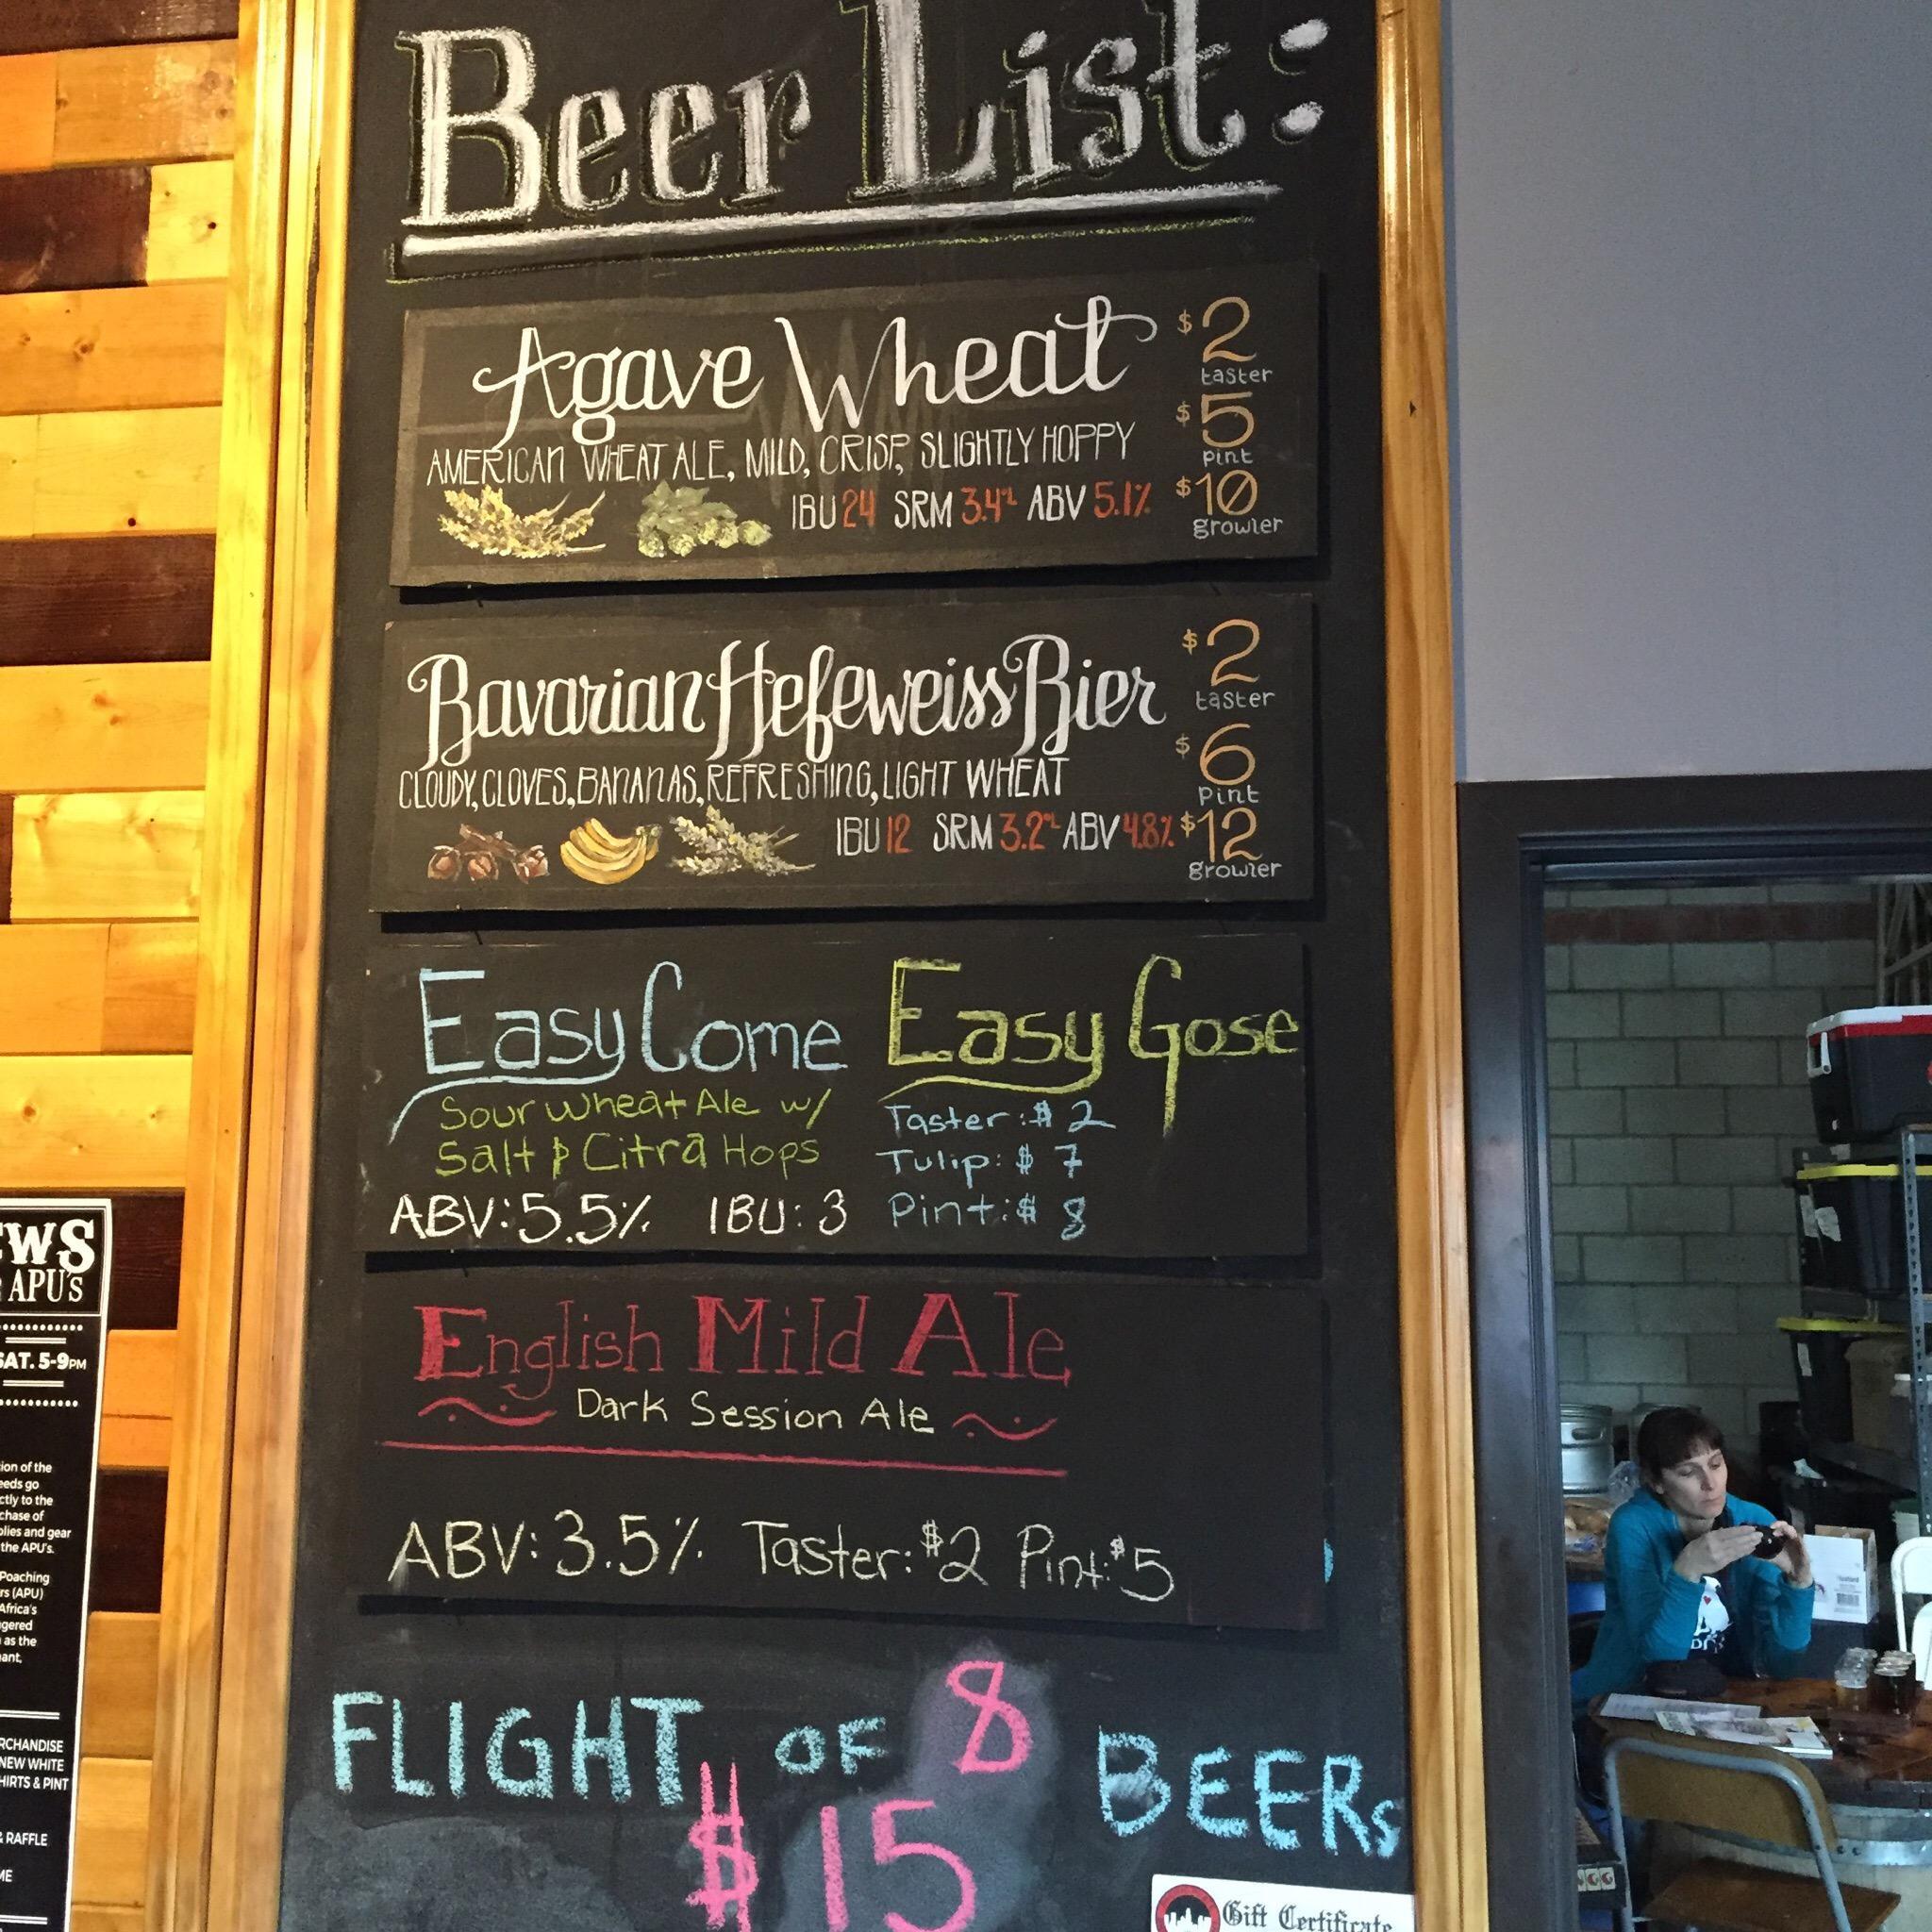 Beer List:
Agave Wheat
AMERICAN WHEAT ALE, MILD, CRISP, SLIGHTLY HOPPY
IBU 24 SRM 3.4°L ABV 5.1%
$2
taster
$5
pint
$10
growler
Bavarian Hefeweiss Bier
CLOUDY, CLOVES, BANANAS, REFRESHING, LIGHT WHEAT
IBU 12 SRM 3.2°L ABV 4.8%
$2
taster
$6
pint
$12
growler
Easy Come Easy Gose
Sour Wheat Ale w/
Salt & Citra Hops
ABV: 5.5% IBU: 3
Taster: $2
Tulip: $7
Pint: $8
English Mild Ale
Dark Session Ale
ABV: 3.5% Taster: $2 Pint: $5
FLIGHT OF 8 BEERS
$15
Gift Certificate
APU'S
SAT. 5-9PM
of the
go
to the
of
and gear
the APU's.
Poaching
(APU)
Africa's
as the
NEW WHITE
& PINT
& RAFFLE